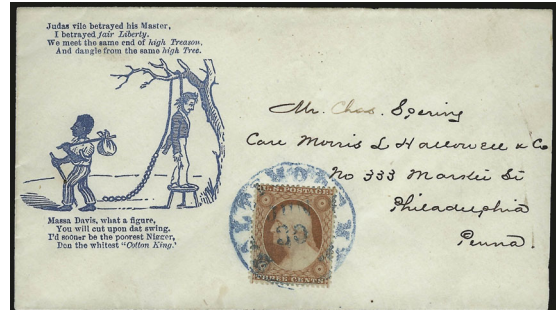 Judas vile betrayed his Master,
I betrayed fair Liberty.
We meet the same end of high Treason,
And dangle from the same high Tree.
Massa Davis, what a figure,
You will cut upon dat swing.
I'd sooner be the poorest Nigger,
Den the whitest "Cotton King."
Mr. Chas. Spering
Care Morris L Hallowell & Co
No 333 Market St
Philadelphia
Penna
THREE CENTS